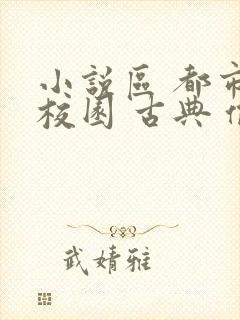 小說區 都市
校園 古典
武婧雅